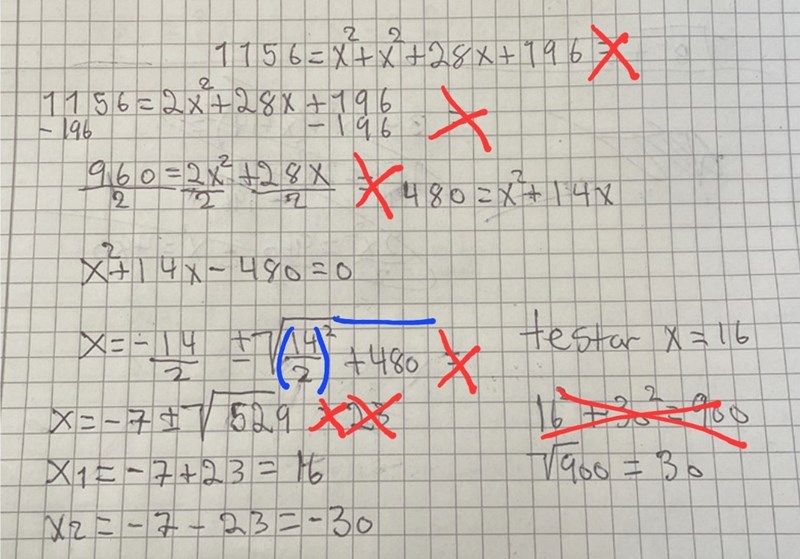 1156 = x² + x² + 28x + 196 =
1156 = 2x² + 28x + 196
-196 -196
960/2 = 2x²/2 + 28x/2 = 480 = x² + 14x
x² + 14x - 480 = 0
x = -14/2 ± √(14/2)² + 480 =
testar x = 16
x = -7 ± √529 = 23
16² + 30² = 900
x1 = -7 + 23 = 16
√900 = 30
x2 = -7 - 23 = -30